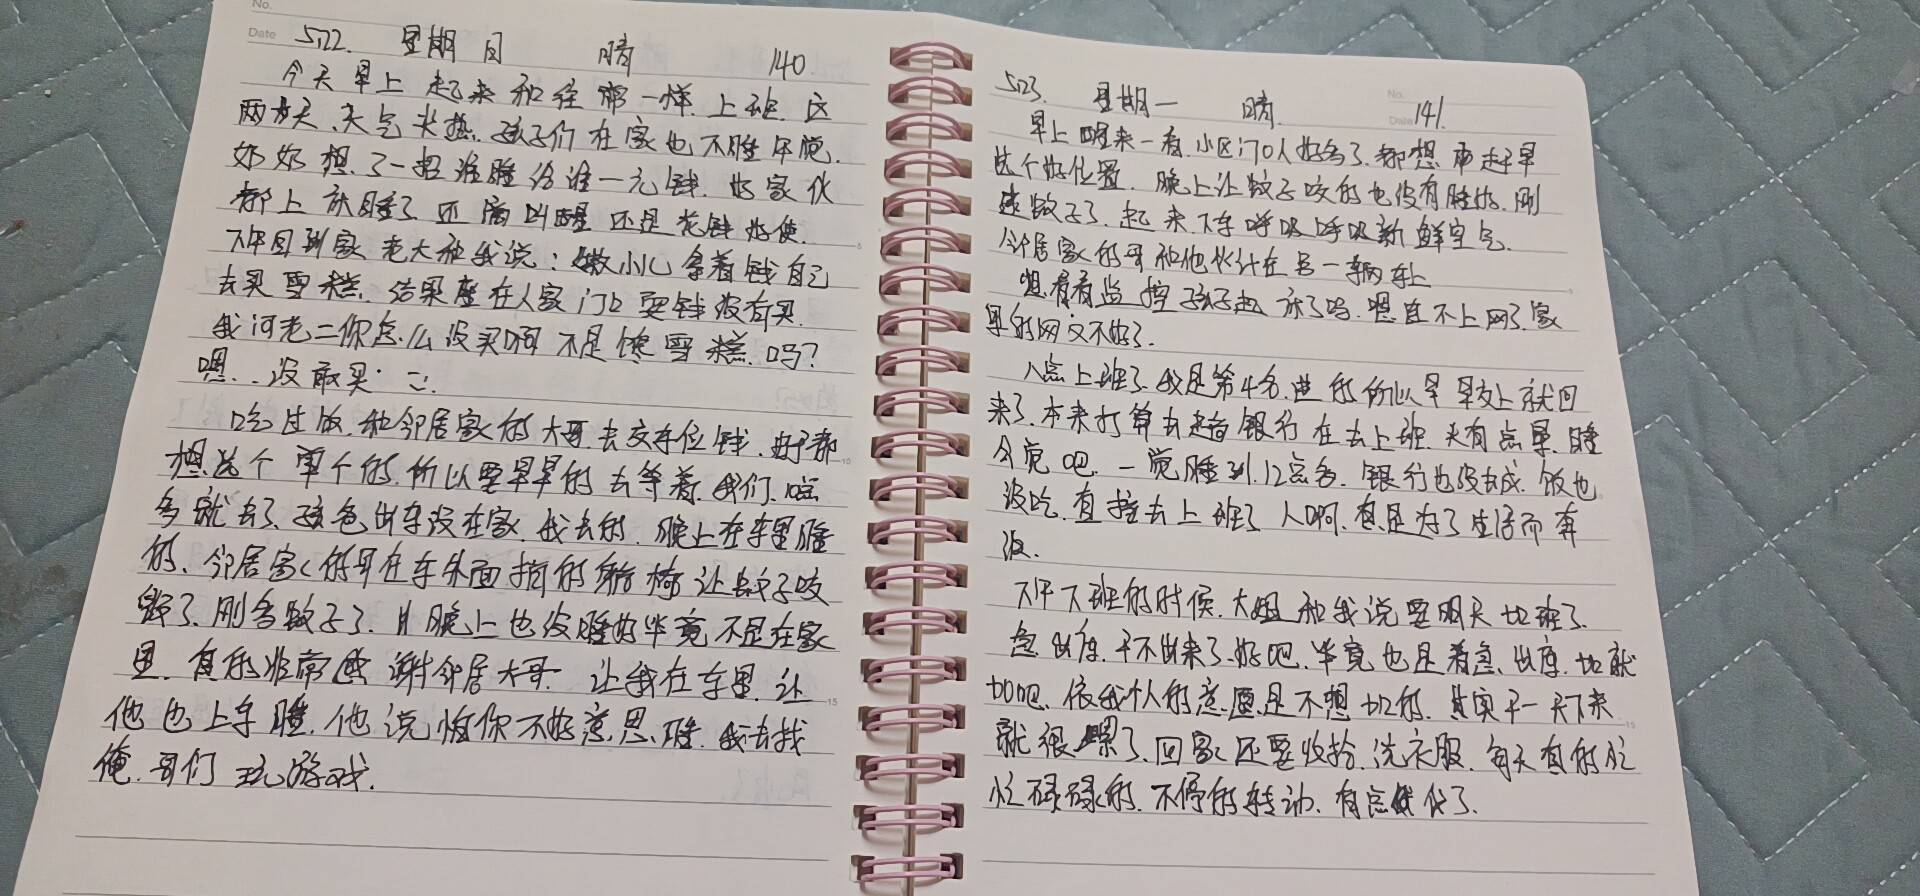 No.
Date 5.22. 星期日 晴 140.
今天早上起来和往常一样.上班.这
两天.天气太热.孩子们在家也不睡午觉.
奶奶想了一招谁睡给谁一元钱.好家伙
都上床睡了还需叫醒还是花钱好使.
下午回到家老大和我说:做小儿拿着钱自己
去买雪糕.结果座在人家门口耍钱没有买.
我问老二你怎么没买啊不是馋雪糕.吗?
嗯..没敢买.
吃过饭.和邻居家的大哥.去交车位钱.好都
想选个 的.所以要早早的去等着.我们.点
多就去了.孩爸出车没在家.我去的.晚上在车里睡
的.邻居家的哥在车外面 的 椅让蚊子咬
了.刚多蚊子了.晚上也没睡好毕竟不是在家
里.真的非常感谢邻居大哥.让我在车里.让
他也上车睡.他说怕你不好意思.睡.我去找
俺.哥们玩游戏.
5.23. 星期一 晴. 141.
No.
Date
早上醒来一看.小区门口人好多了.都想 赶早
选个好位置.晚上让蚊子咬的也没有睡好.刚
蚊子了.起来下车呼吸呼吸新鲜空气.
邻居家的哥和他伙计在另一辆车上
想看看监控孩子起床了吗.想直不上网了.家
里的网又不好了.
八点上班了.我是第4名.进的所以早早交上就回
来了.本来打算去趟银行在去上班.来有点早.睡
会觉吧.一觉睡到.12点多.银行也没去成.饭也
没吃.直接去上班了人啊.总是为了生活而奔
波.
下午下班的时候.大姐和我说要明天加班了.
急出库.干不出来了.好吧.毕竟也是着急.出库.加就
加吧.依我个人的意愿是不想加的.其实干一天下来
就很累了.回家还要收拾.洗衣服.每天真的忙
忙碌碌的.不停的转动.有点 了.